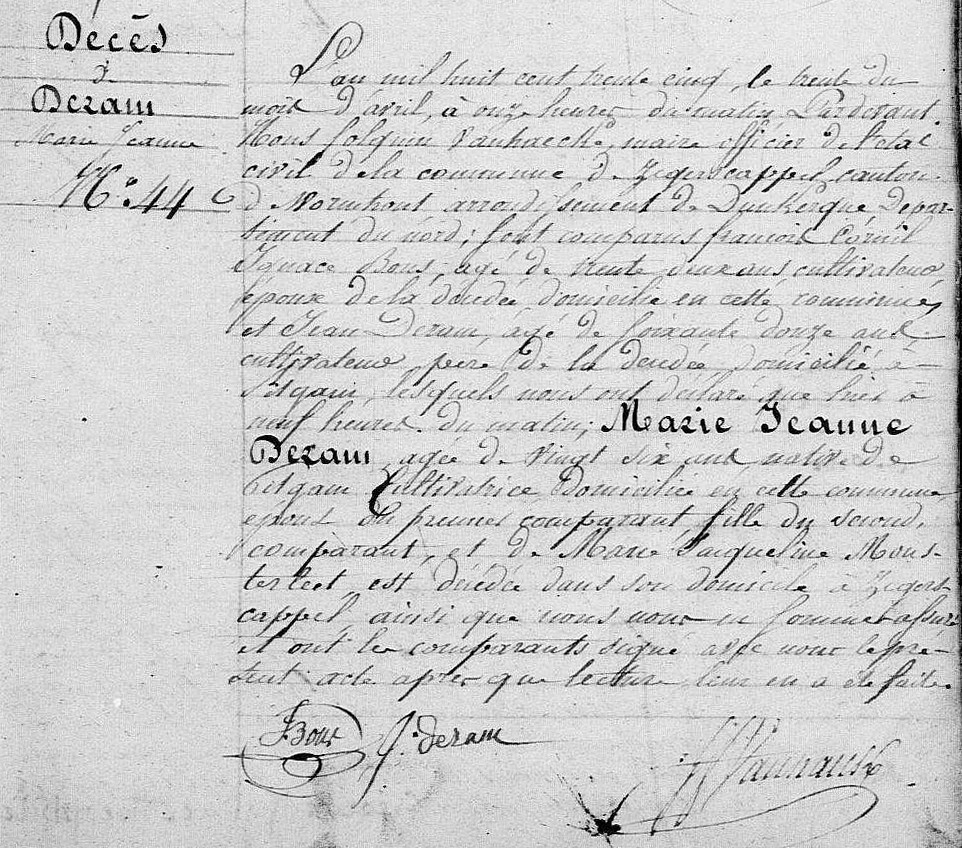 Décès
d
Deram
Marie Jeanne
N.º 44
L'an mil huit cent trente cinq, le trente du
mois d'avril, à onze heures du matin Pardevant
Nous folquin Vanhaecke, maire officier de l'état
civil de la commune de Zegerscappel, canton
d Wormhout arrondissement de Dunkerque Depar-
tement du nord; sont comparus françois Cornil
Ignace Bous, agé de trente deux ans cultivateur
epoux de la décédée domicilié en cette commune,
et Jean Deram, âgé de soixante douze ans
cultivateur pere de la decedée domicilié à
Pitgam, lesquels nous ont déclaré que hier à
neuf heures du matin; Marie Jeanne
Deram agée de vingt six ans native de
Pitgam Cultivatrice Domiciliée en cette commune
epouse du premier comparant fille du second
comparant, et de Marie Jacqueline Mons-
terleet, est décédée dans son domicile à Zegers-
cappel, ainsi que nous nous en sommes assuré
et ont les comparants signé avec nous le pre-
sent acte après que lecture leur en a été faite.
Bous J. deram